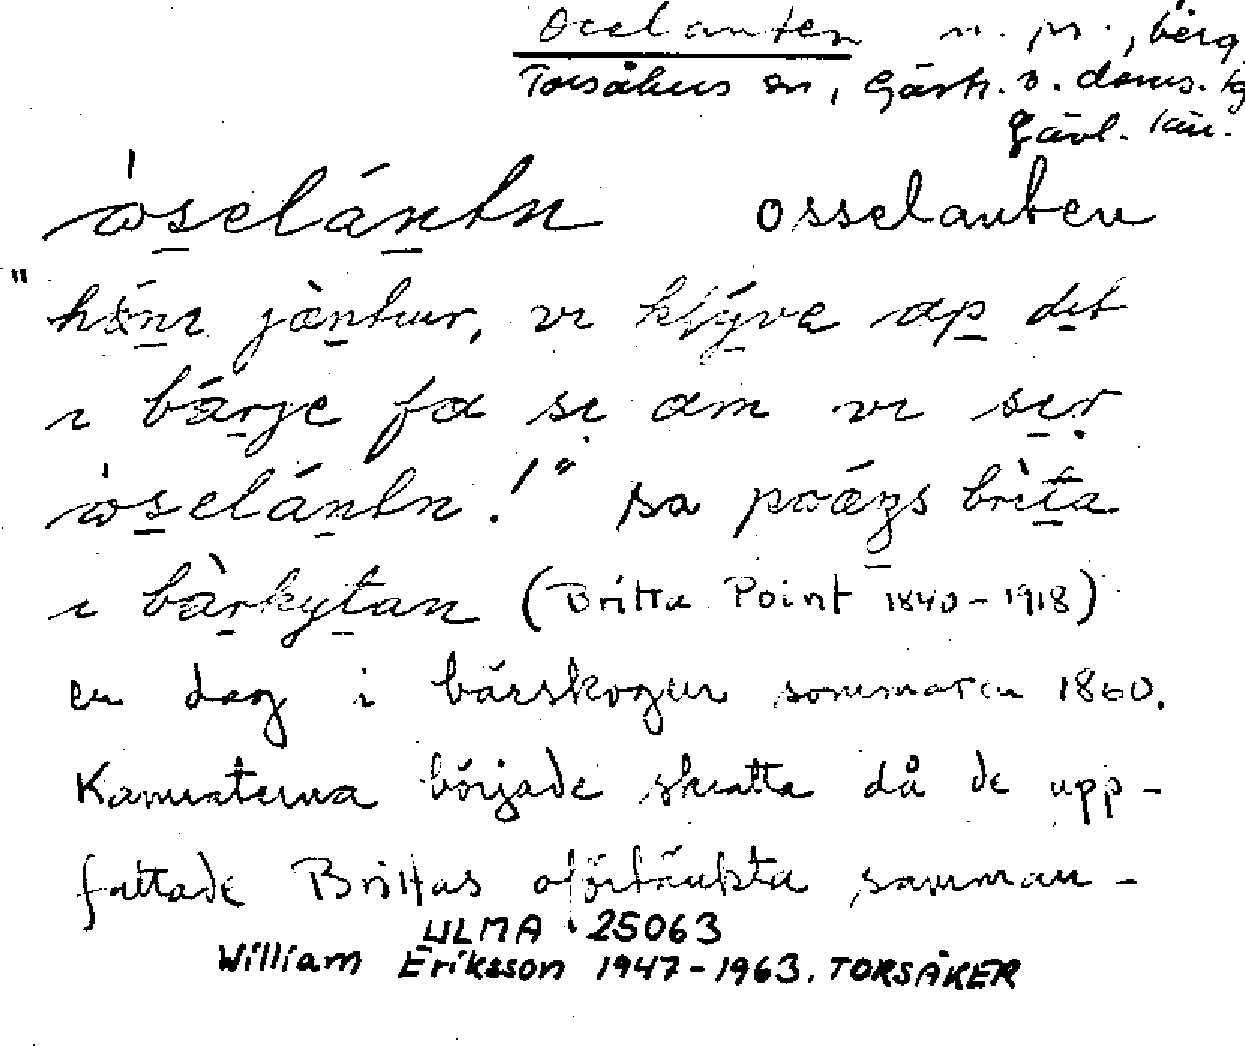 Ocelanten n. pr., berg
Torsåkers sn, Gästr. ö. doms.
Gävl. län.
òselántn osselanten
" häni jæ̀ntur, vi klýve ɑp det
i bárje fɑ si ɑm vi sir
òselántn!" sa poæŋs brìta
i bàrkytan (Britta Point 1840-1918)
en dag i bärskogen sommaren 1860.
Kamraterna började skratta då de upp-
fattade Brittas oförtänkta samman-
ULMA 25063
William Eriksson 1947-1963. TORSÅKER